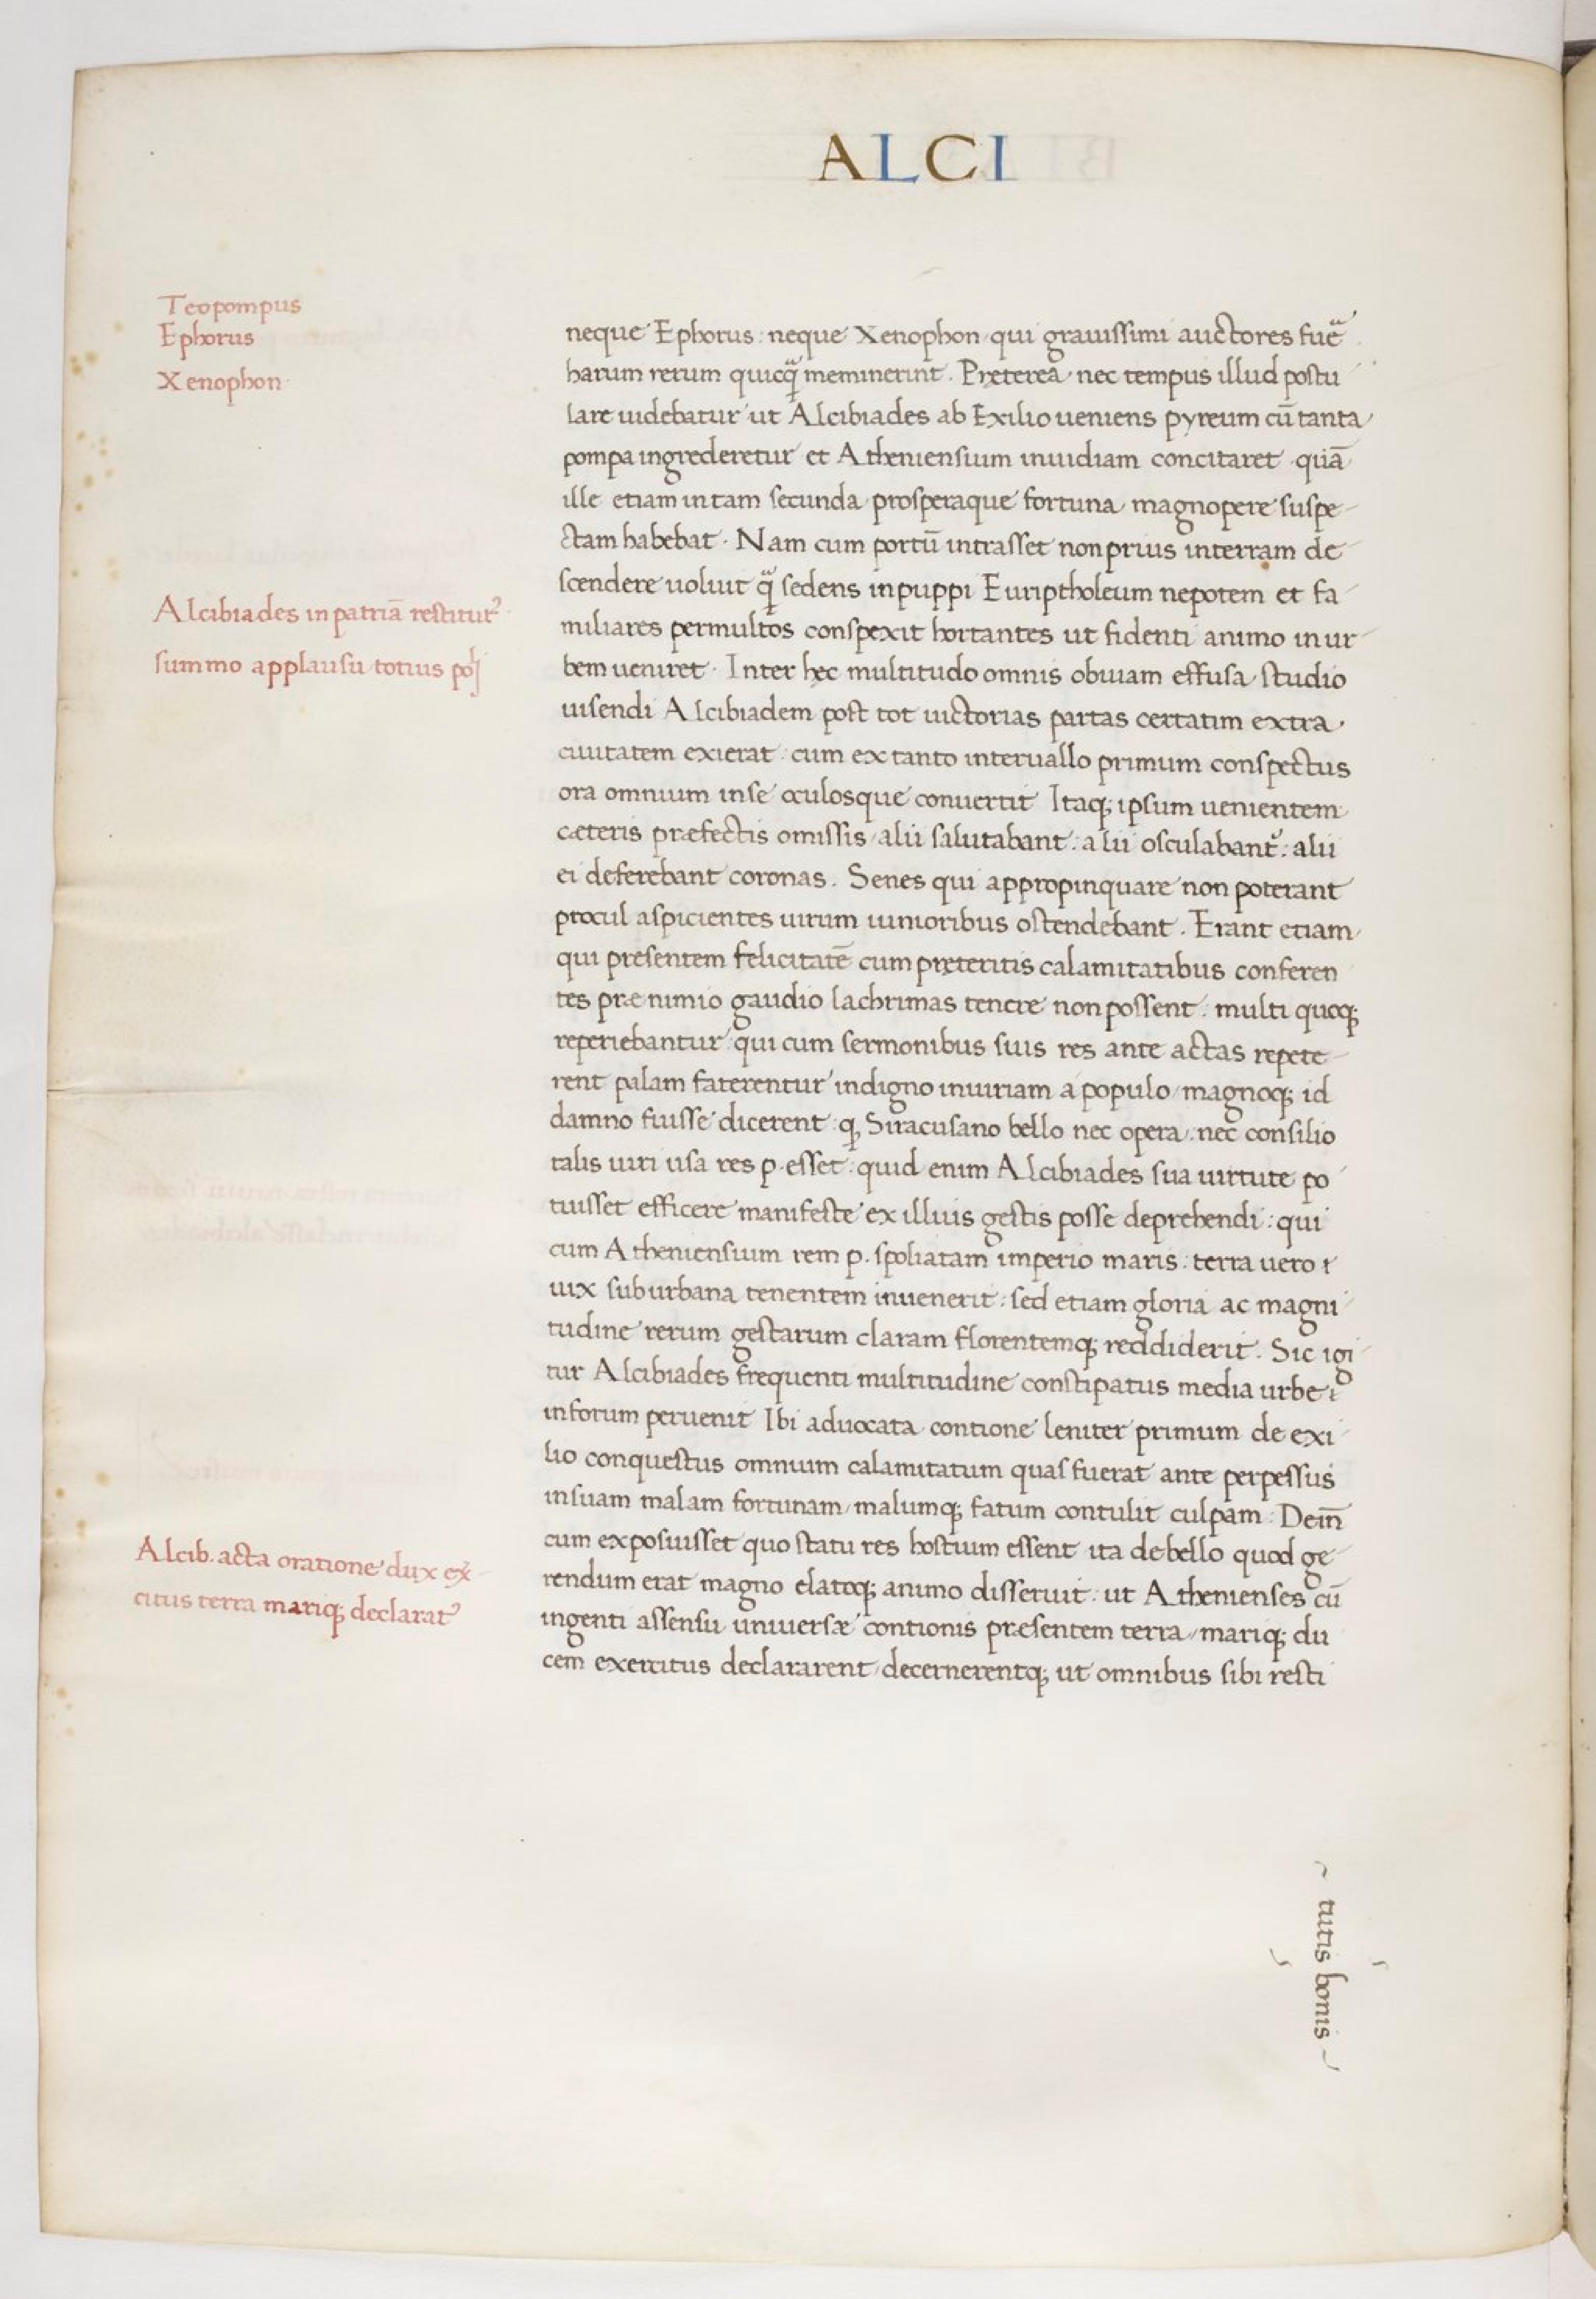 ALCI
Teopompus
Ephorus
Xenophon·
neque Ephorus: neque Xenophon qui grauissimi auctores fuẽ
harum rerum quicq̃ meminerint. Pręterea nec tempus illud postu
lare uidebatur ut Alcibiades ab Exilio ueniens pyreum cū tanta
pompa ingrederetur et Atheniensium inuidiam concitaret quā
ille etiam in tam secunda prosperaque fortuna magnopere suspe-
ctam habebat. Nam cum portū intrasset non prius in terram de
scendere uoluit q̃ sedens in puppi Euriptholeum nepotem et fa
miliares permultos conspexit hortantes ut fidenti animo in ur
bem ueniret. Inter hęc multitudo omnis obuiam effusa studio
uisendi Alcibiadem post tot uictorias partas certatim extra
ciuitatem exierat: cum ex tanto interuallo primum conspectus
ora omnium in se oculosque conuertit Itaq; ipsum uenientem
cæteris præfectis omissis alii salutabant: alii osculabant᷑: alii
ei deferebant coronas. Senes qui appropinquare non poterant
procul aspicientes uirum iunioribus ostendebant. Erant etiam
qui presentem felicitatē cum pręteritis calamitatibus conferen
tes præ nimio gaudio lachrimas tenere non possent: multi quoq;
reperiebantur qui cum sermonibus suis res ante actas repete
rent palam faterentur indigno iniuriam a populo magnoq; id
damno fuisse dicerent: q, Siracusano bello nec opera nec consilio
talis uiri usa res p. esset: quid enim Alcibiades sua uirtute po
tuisset efficere manifeste ex illius gestis posse deprehendi: qui
cum Atheniensium rem p. spoliatam imperio maris: terra uero
uix suburbana tenentem inuenerit: sed etiam gloria ac magni
tudine rerum gestarum claram florentemq; reddiderit. Sic igi
tur Alcibiades frequenti multitudine constipatus media urbe
in forum peruenit Ibi aduocata contione leniter primum de exi
lio conquestus omnium calamitatum quas fuerat ante perpessus
in suam malam fortunam malumq; fatum contulit culpam: Dein̄
cum exposuisset quo statu res hostium essent ita de bello quod ge
rendum erat magno elatoq; animo disseruit: ut Athenienses cū
ingenti assensu uniuersæ contionis præsentem terra mariq; du
cem exercitus declararent decernerentq; ut omnibus sibi resti
Alcibiades in patriā restitut᷑
summo applausu totius
Alcib. acta oratione dux ex̃
citus terra mariq; declarat᷑
tutis bonis